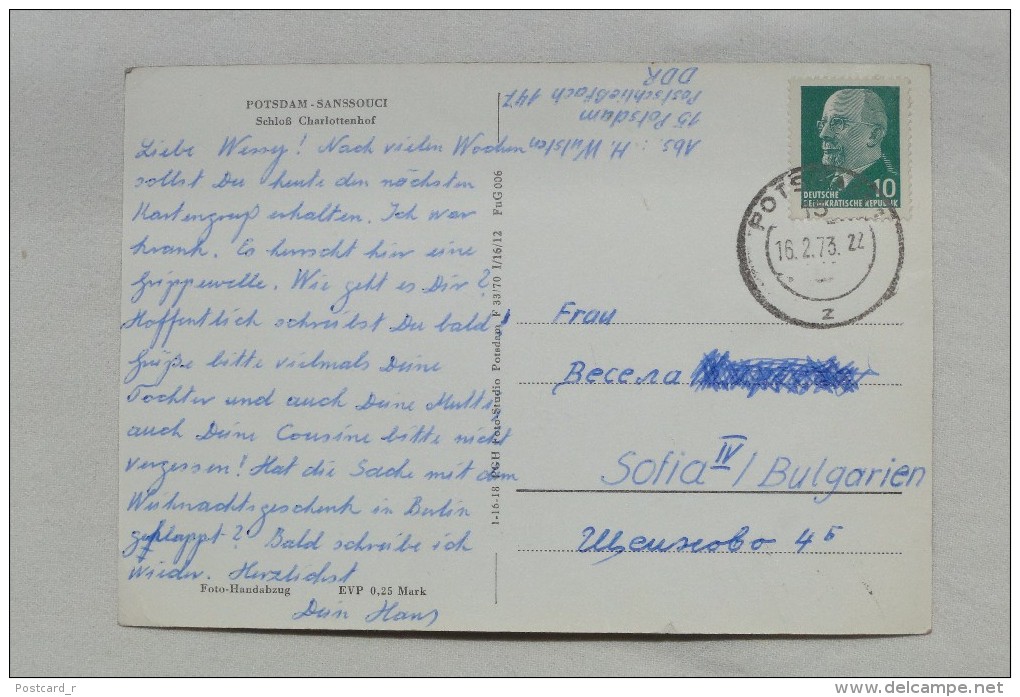 POTSDAM-SANSSOUCI
Schloß Charlottenhof
Liebe Wessy! Nach vielen Wochen
sollst Du heute den nächsten
Kartengruß erhalten. Ich war
krank. Es herrscht hier eine
Grippewelle. Wie geht es Dir?
Hoffentlich schreibst Du bald!
Grüße bitte vielmals Deine
Tochter und auch Deine Mutti,
auch Deine Cousine bitte nicht
vergessen! Hat die Sache mit dem
Weihnachtsgeschenk in Berlin
geklappt? Bald schreibe ich
wieder. Herzlichst
Dein Hans
Foto-Handabzug EVP 0,25 Mark
1-16-18 PGH Foto-Studio Potsdam F 33/70 I/16/12 FnG 006
Abs.: H. Wulsten
15 Potsdam
Postschließfach 147
DDR
10
DEUTSCHE
DEMOKRATISCHE REPUBLIK
POTS
15
16.2.73. 22
z
Frau
Весела
Sofia IV / Bulgarien
4 Б
Postcard_r
http://www.delcampe.net